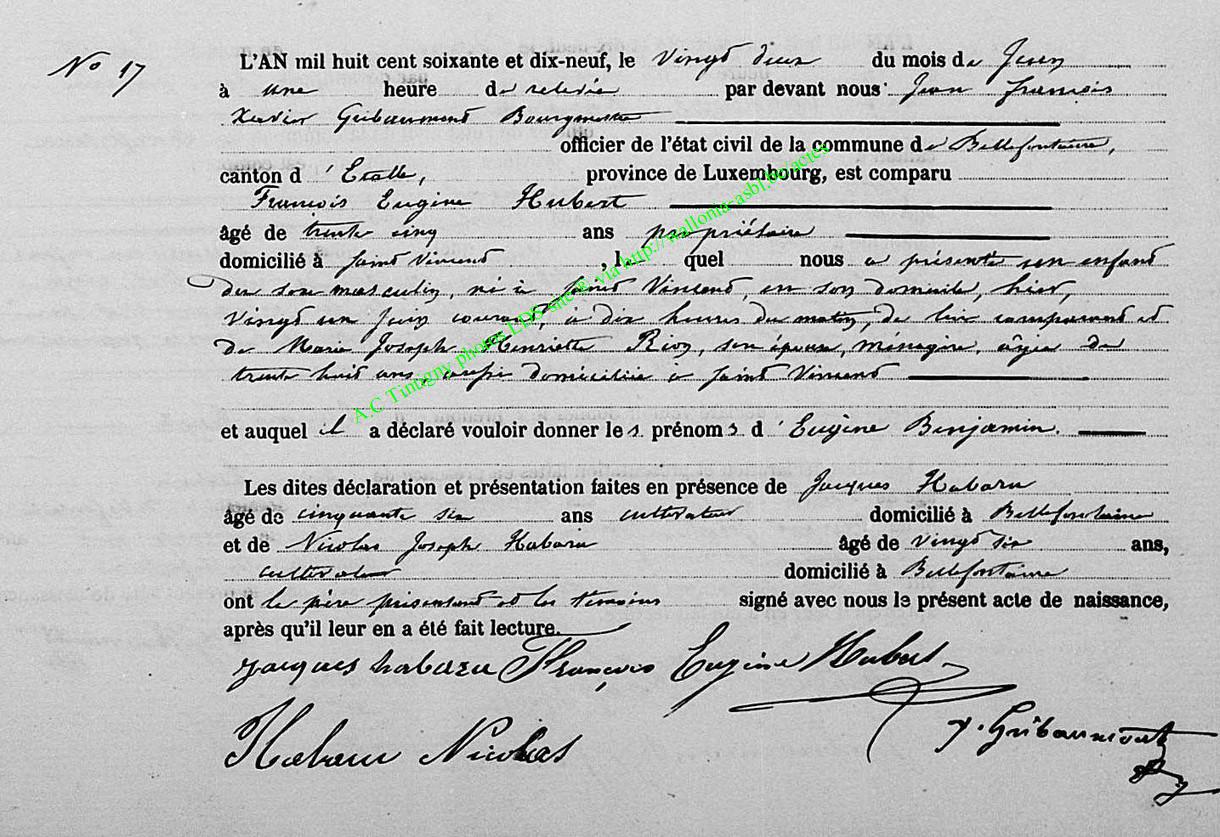 No 17
L'AN mil huit cent soixante et dix-neuf, le vingt deux du mois de Juin
à une heure de relevée par devant nous Jean François
Xavier Gribaumont Bourgmestre
officier de l'état civil de la commune de Bellefontaine,
canton d'Etalle, province de Luxembourg, est comparu
François Eugène Hubert
âgé de trente cinq ans propriétaire
domicilié à Saint Vincent, le quel nous a présenté un enfant
du sexe masculin, né à Saint Vincent, en son domicile, hier,
vingt un Juin courant, à dix heures du matin, de lui comparant et
de Marie Joseph Henriette son épouse, ménagère, âgée de
trente huit ans, aussi domiciliée à Saint Vincent
et auquel il a déclaré vouloir donner les prénoms d'Eugène Benjamin.
Les dites déclaration et présentation faites en présence de Jacques Habaru
âgé de cinquante six ans cultivateur domicilié à Bellefontaine
et de Nicolas Joseph Habaru âgé de vingt six ans,
cultivateur domicilié à Bellefontaine
ont le père présentant et les témoins signé avec nous le présent acte de naissance,
après qu'il leur en a été fait lecture.
jacques habaru François Eugène Hubert
Habaru Nicolas
Gribaumont
A.C Tintigny photos LDS site & via http://wallonia-asbl.be/actes